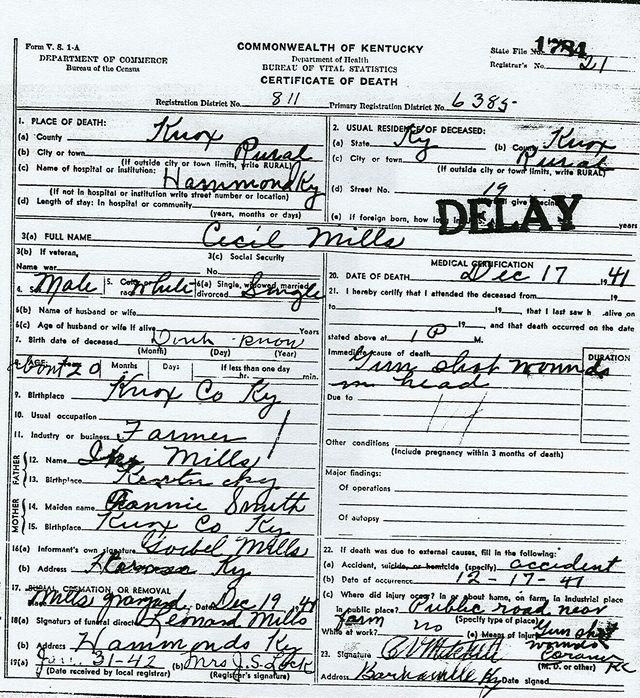 Form V. S. 1-A
DEPARTMENT OF COMMERCE
Bureau of the Census
COMMONWEALTH OF KENTUCKY
Department of Health
BUREAU OF VITAL STATISTICS
CERTIFICATE OF DEATH
State File No. 1784
Registrar's No. 21
Registration District No. 811 Primary Registration District No. 6385
1. PLACE OF DEATH:
(a) County Knox
(b) City or town Rural
(If outside city or town limits, write RURAL)
(c) Name of hospital or institution: Hammond Ky
(If not in hospital or institution write street number or location)
(d) Length of stay: In hospital or community
(years, months or days)
2. USUAL RESIDENCE OF DECEASED:
(a) State Ky (b) County Knox
(c) City or town Rural
(If outside city or town limits, write RURAL)
(d) Street No. 19
DELAY
(e) If foreign born, how long in years
3(a) FULL NAME Cecil Mills
3(b) If veteran,
Name war
3(c) Social Security
No.
4. Sex Male 5. Color or race White 6(a) Single, widowed, married, divorced Single
6(b) Name of husband or wife
6(c) Age of husband or wife if alive Years
7. Birth date of deceased Don't know
(Month) (Day) (Year)
8. AGE: about 20 Months Days If less than one day
hr. min.
9. Birthplace Knox Co Ky
10. Usual occupation
11. Industry or business Farmer
FATHER
12. Name Mills
13. Birthplace Kentucky
MOTHER
14. Maiden name Smith
15. Birthplace Knox Co Ky
16(a) Informant's own signature Goebel Mills
(b) Address Ky
17. BURIAL, CREMATION OR REMOVAL
Mills graveyard Date Dec 19 41
18(a) Signature of funeral director Leonard Mills
(b) Address Hammonds Ky
19(a) Jan. 31-42 (b) Mrs J. S.
(Date received by local registrar) (Registrar's signature)
MEDICAL CERTIFICATION
20. DATE OF DEATH Dec 17 1941
21. I hereby certify that I attended the deceased from 19
to 19, that I last saw h alive on
19, and that death occurred on the date
stated above at 1 P M.
Immediate cause of death Gun shot wounds
in head
DURATION
Due to
Other conditions
(Include pregnancy within 3 months of death)
Major findings:
Of operations
Of autopsy
22. If death was due to external causes, fill in the following:
(a) Accident, suicide, or homicide (specify) accident
(b) Date of occurrence 12-17-41
(c) Where did injury occur? in or about home, on farm, in industrial place
in public place? Public road near
farm (Specify type of place)
While at work? no (e) Means of injury Gun shot
wounds
23. Signature Mitchell Coroner KC
(M. D. or other)
Address Barbourville Ky Date signed